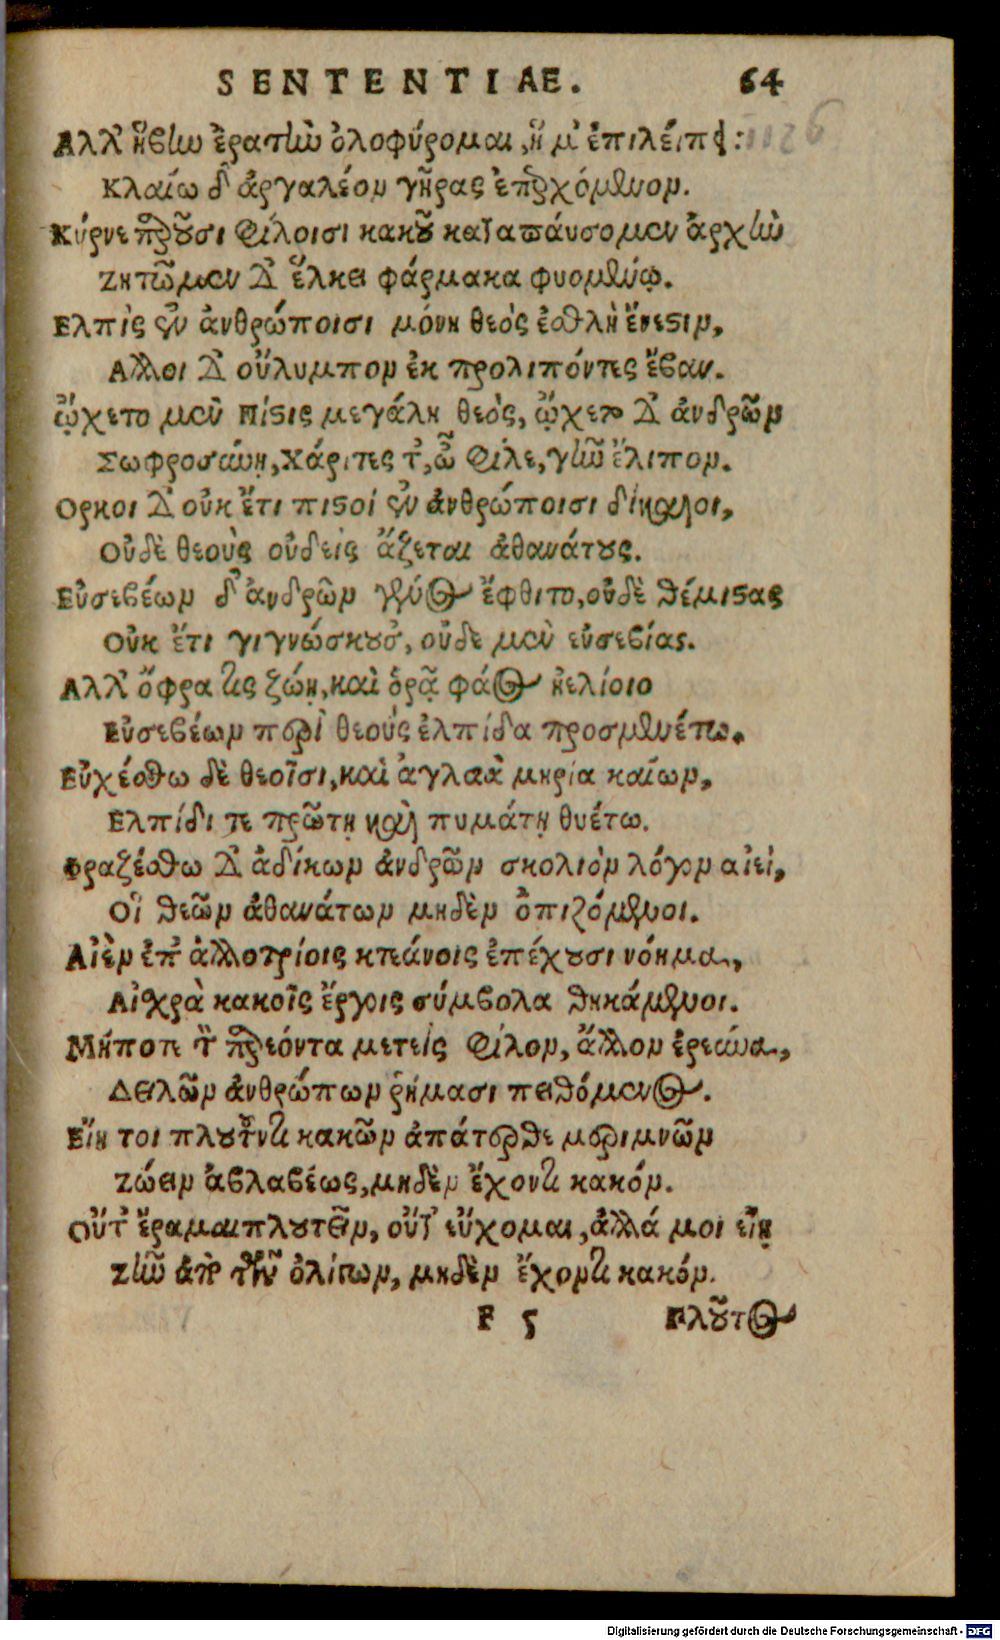 SENTENTIAE. 64
Ἀλλ᾽ ἥβην ἐρατὴν ὀλοφύρομαι, ἥ μ᾽ ἐπιλείπει:
Κλαίω δ᾽ ἀργαλέον γῆρας ἐπερχόμενον.
Κύρνε παροῦσι φίλοισι κακοῦ καταπαύσομεν ἀρχὴν
Ζητῶμεν δ᾽ ἕλκει φάρμακα φυομένῳ.
Ελπὶς ἐν ἀνθρώποισι μόνη θεὸς ἐσθλὴ ἔνεστιν,
Αλλοι δ᾽ οὔλυμπον ἐκ προλιπόντες ἔβαν.
ᾤχετο μὲν Πίστις μεγάλη θεὸς, ᾤχετο δ᾽ ἀνδρῶν
Σωφροσύνη, Χάριτες τ᾽, ὦ φίλε, γῆν ἔλιπον.
Ορκοι δ᾽ οὐκ ἔτι πιστοί ἐν ἀνθρώποισι δίκαιοι,
Οὐδὲ θεοὺς οὐδεὶς ἅζεται ἀθανάτους.
Εὐσεβέων δ᾽ ἀνδρῶν γένος ἔφθιτο, οὐδὲ θέμιστας
Οὐκ ἔτι γιγνώσκουσ᾽, οὐδε μὲν εὐσεβίας.
Αλλ᾽ ὄφρα τις ζώῃ, καὶ ὁρᾷ φάος ἠελίοιο
Εὐσεβέων περὶ θεοὺς ἐλπίδα προσμενέτω.
Εὐχέσθω δὲ θεοῖσι, καὶ ἀγλαὰ μηρία καίων,
Ελπίδι τε πρῶτῃ καὶ πυμάτῃ θυέτω.
Φραζέσθω δ᾽ ἀδίκων ἀνδρῶν σκολιὸν λόγον αἰεὶ,
Οἳ θεῶν ἀθανάτων μηδὲν ὀπιζόμενοι.
Αἰὲν ἐπ᾽ ἀλλοτρίοις κτεάνοις ἐπέχουσι νόημα,
Αἰσχρὰ κακοῖς ἔργοις σύμβολα θηκάμενοι.
Μήποτε τ παρεόντα μετεὶς φίλον, ἄλλον ἐρεύνα,
Δειλῶν ἀνθρώπων ῥήμασι πειθόμενος.
Εἴη τοι πλουτοῦντι κακῶν ἀπάτερθε μεριμνῶν
Ζώειν ἀβλαβέως, μηδὲν ἔχοντι κακόν.
Οὔτ᾽ ἔραμαι πλουτεῖν, οὔτ᾽ εὔχομαι, ἀλλά μοι εἴη
Ζῆν ἀπὸ τῶν ὀλίγων, μηδὲν ἔχοντι κακόν.
F 5 Πλοῦτος
Digitalisierung gefördert durch die Deutsche Forschungsgemeinschaft - DFG